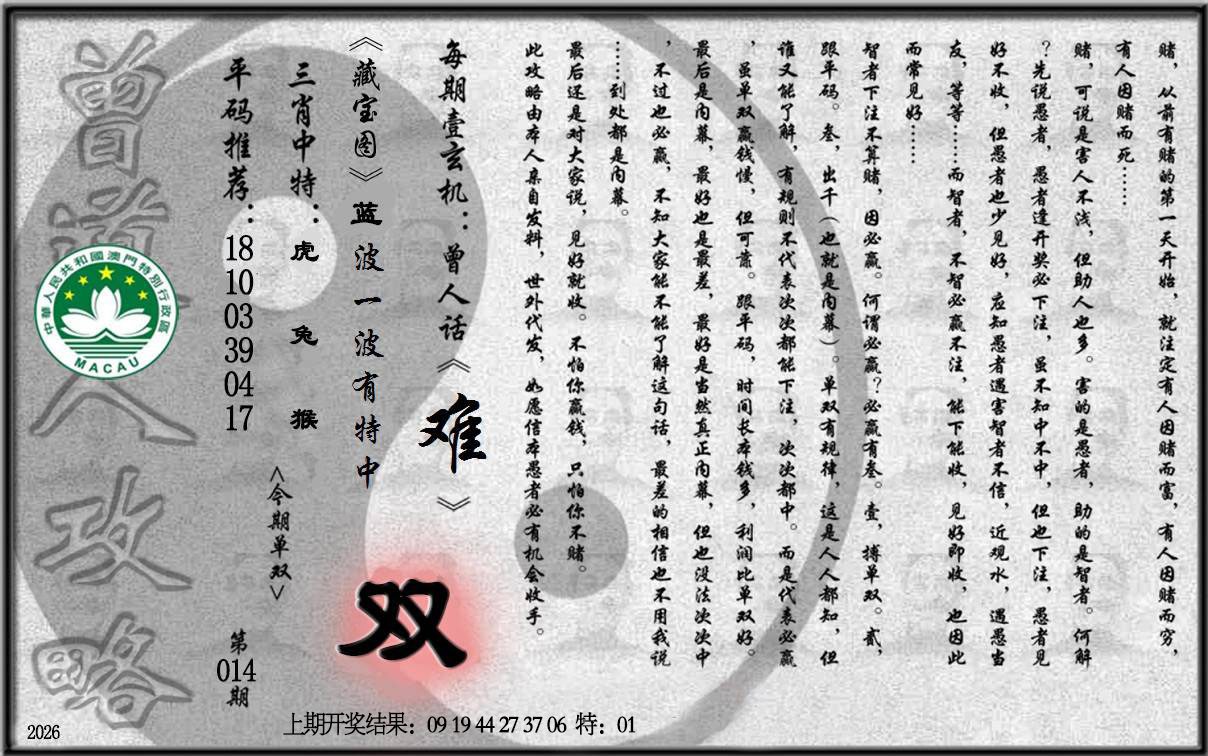 赌，从前有赌的第一天开始，就注定有人因赌而富，有人因赌而穷，
有人因赌而死……
赌，可说是害人不浅，但助人也多。害的是愚者，助的是智者。何解
？先说愚者，愚者逢开奖必下注，虽不知中不中，但也下注，愚者见
好不收，但愚者也少见好，应知愚者遇害智者不信，近观水，遇愚当
友，等等……而智者，不智必赢不注，能下能收，见好即收，也因此
而常见好……
智者下注不算赌，因必赢。何谓必赢？必赢有叁。壹，搏单双。贰，
跟平码。叁，出千（也就是内幕）。单双有规律，这是人人都知，但
谁又能了解，有规则不代表次次都能下注，次次都中。而是代表必赢
，虽单双赢钱慢，但可靠。跟平码，时间长本钱多，利润比单双好。
最后是内幕，最好也是最差，最好是当然真正内幕，但也没法次次中
，不过也必赢，不知大家能不能了解这句话，最差的相信也不用我说
……到处都是内幕。
最后还是对大家说，见好就收。不怕你赢钱，只怕你不赌。
此攻略由本人亲自发料，世外代发，如愿信本愚者必有机会收手。
每期壹玄机：曾人话《难》
《藏宝图》蓝波一波有特中
双
三肖中特：虎 兔 猴
<今期单双>
平码推荐：18 10 03 39 04 17
第014期
曾道人攻略
中華人民共和國澳門特別行政區
MACAU
上期开奖结果：09 19 44 27 37 06 特：01
2026